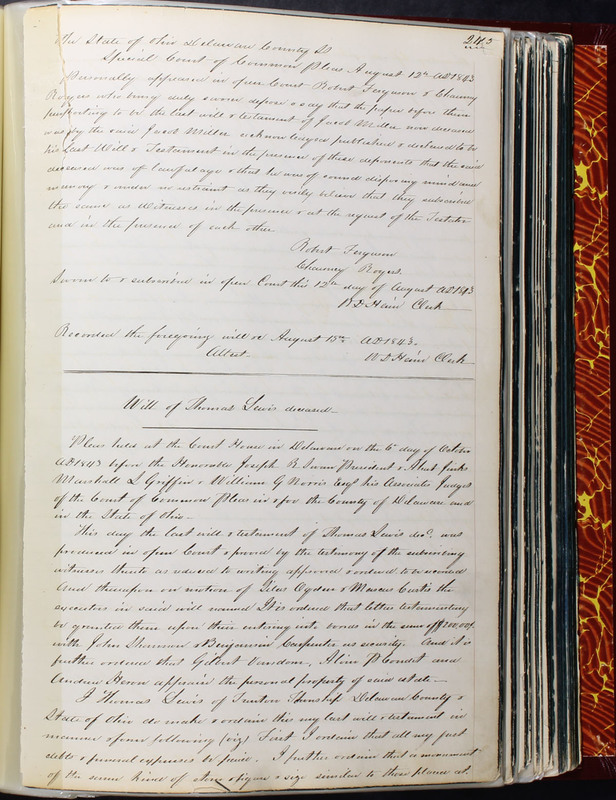 243
The State of Ohio Delaware County SS
Special Court of Common Pleas August 12th AD 1843
Personally appeared in open Court Robert Ferguson & Chauncy
Rogers who being duly sworn depose & say that the paper before them
purporting to be the last will & testament of Jacob Miller now deceased
was by the said Jacob Miller acknowledged published & declared to be
his last Will & Testament in the presence of these deponents that the said
deceased was of lawful age & that he was of sound disposing mind and
memory & under no restraint as they verily believe that they subscribed
the same as witnesses in the presence & at the request of the Testator
and in the presence of each other
Robert Ferguson
Chauncy Rogers
Sworn to & subscribed in open Court this 12th day of August AD 1843
Clerk
Recorded the foregoing will &c August 15th AD 1843.
Attest. Clerk
Will of Thomas Lewis deceased
Pleas held at the Court House in Delaware on the 6th day of October
AD 1843 before the Honorable Joseph R. Swan President & Ahab Jinks
Marshall L Griffin & William G Norris Esqs his Associate Judges
of the Court of Common Pleas in & for the County of Delaware and
in the State of Ohio
This day the last will & testament of Thomas Lewis decd. was
produced in open Court & proved by the testimony of the subscribing
witnesses thereto as reduced to writing approved & ordered to be recorded
And thereupon on motion of Ogden & Marcus Curtis the
executors in said will named It is ordered that letters testamentary
be granted them upon their entering into bonds in the sum of
with John & Benjamin Carpenter as security. And it is
further ordered that Gilbert Vandorn, Alvin P Condit and
Andrew Heron appraise the personal property of said estate
I Thomas Lewis of Trenton Township Delaware County &
State of Ohio do make & ordain this my last will & testament in
manner & form following (viz) First I ordain that all my just
debts & funeral expenses be paid. I further ordain that a monument
of the same kind of stone & size similar to those placed at